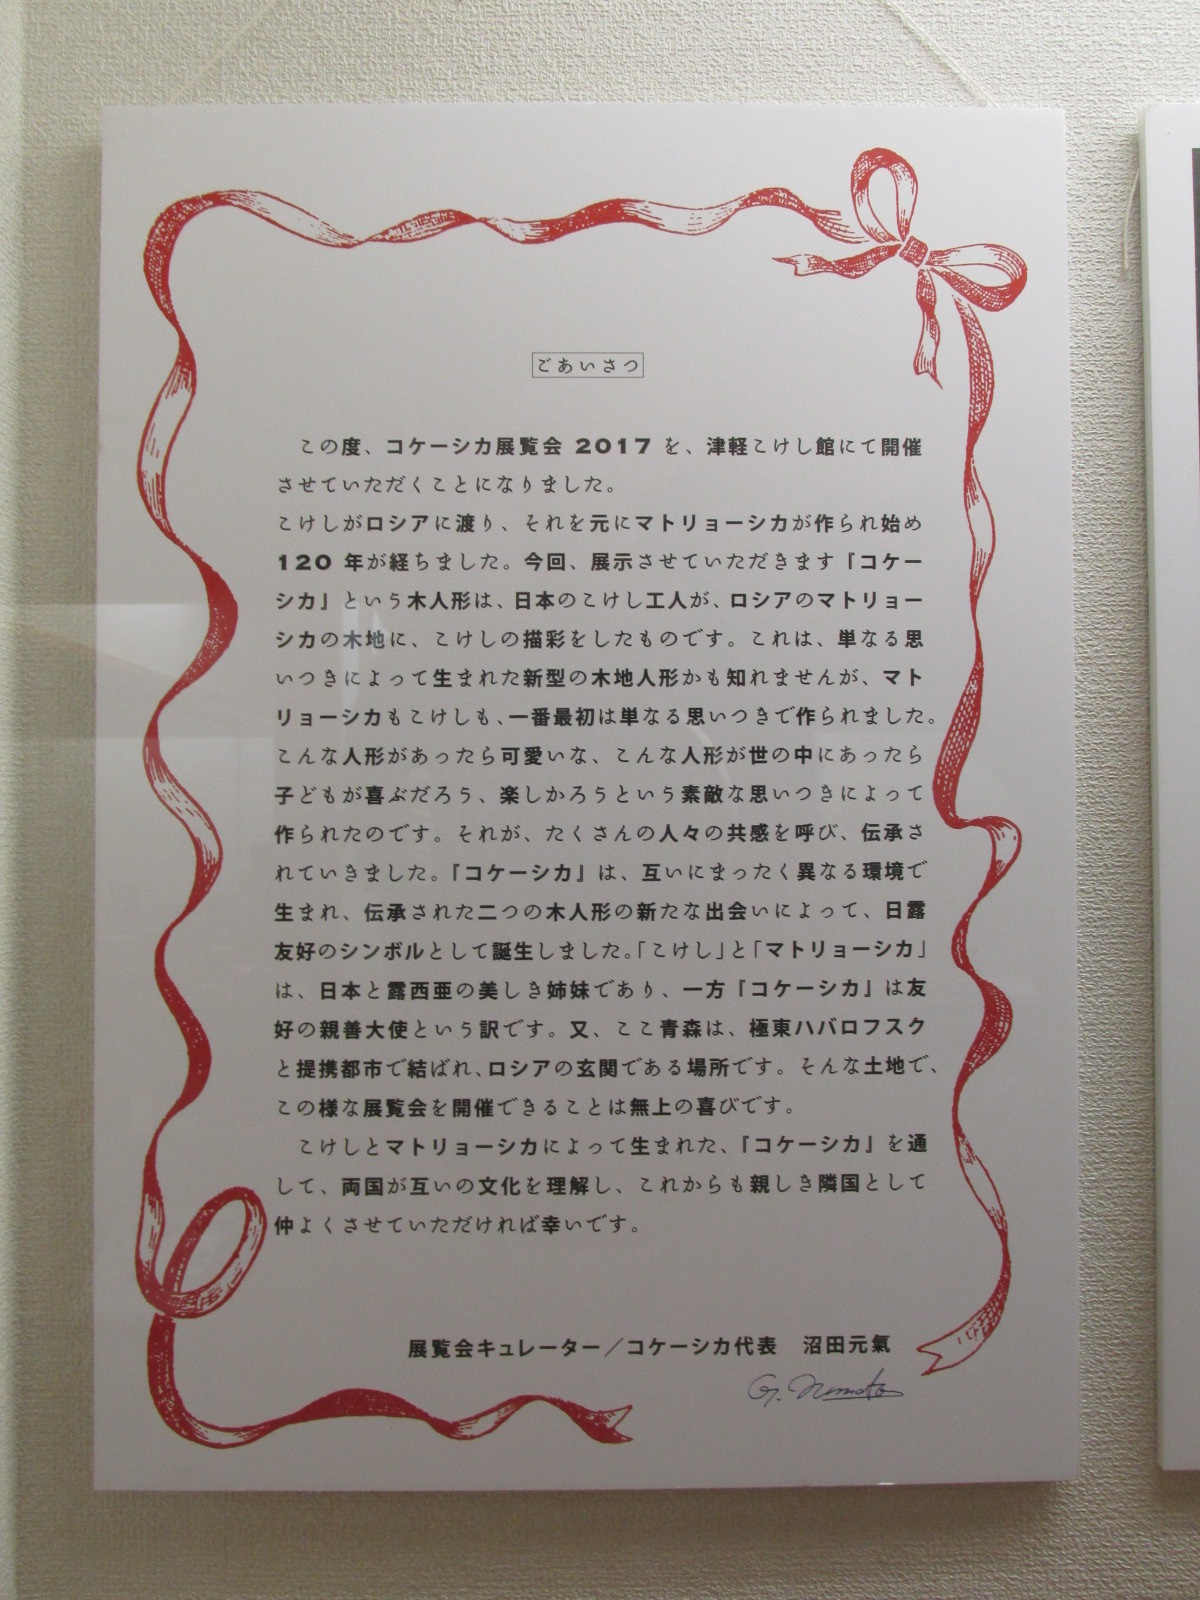 ごあいさつ
この度、コケーシカ展覧会 2017 を、津軽こけし館にて開催
させていただくことになりました。
こけしがロシアに渡り、それを元にマトリョーシカが作られ始め
120 年が経ちました。今回、展示させていただきます『コケー
シカ』という木人形は、日本のこけし工人が、ロシアのマトリョー
シカの木地に、こけしの描彩をしたものです。これは、単なる思
いつきによって生まれた新型の木地人形かも知れませんが、マト
リョーシカもこけしも、一番最初は単なる思いつきで作られました。
こんな人形があったら可愛いな、こんな人形が世の中にあったら
子どもが喜ぶだろう、楽しかろうという素敵な思いつきによって
作られたのです。それが、たくさんの人々の共感を呼び、伝承さ
れていきました。『コケーシカ』は、互いにまったく異なる環境で
生まれ、伝承された二つの木人形の新たな出会いによって、日露
友好のシンボルとして誕生しました。「こけし」と「マトリョーシカ」
は、日本と露西亜の美しき姉妹であり、一方『コケーシカ』は友
好の親善大使という訳です。又、ここ青森は、極東ハバロフスク
と提携都市で結ばれ、ロシアの玄関である場所です。そんな土地で、
この様な展覧会を開催できることは無上の喜びです。
こけしとマトリョーシカによって生まれた、『コケーシカ』を通
して、両国が互いの文化を理解し、これからも親しき隣国として
仲よくさせていただければ幸いです。
展覧会キュレーター／コケーシカ代表 沼田元氣
G. Numata